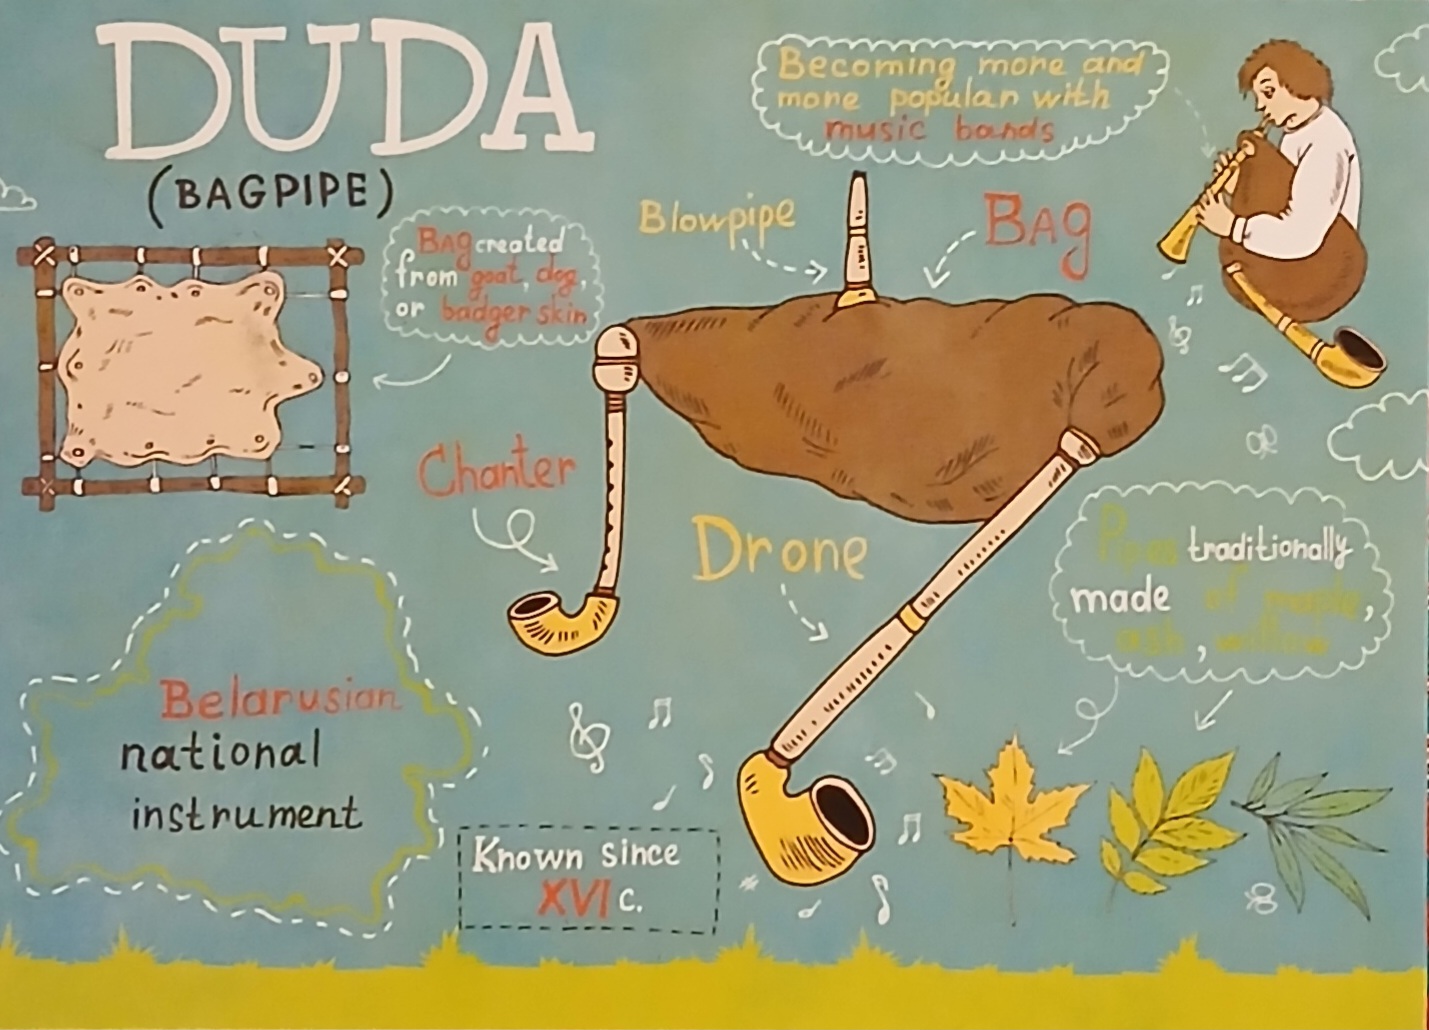 DUDA
(BAGPIPE)
Becoming more and
more popular with
music bands
Blowpipe
BAg
BAg created
from goat, dog,
or badger skin
Chanter
Drone
Pipes traditionally
made of maple,
ash, willow
Belarusian
national
instrument
Known since
XVI c.